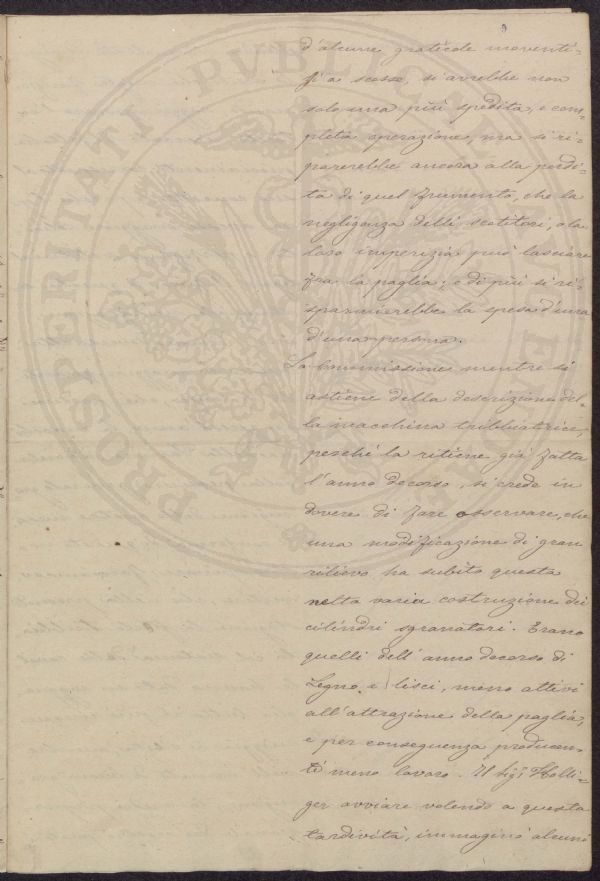 9
d'alcune graticole moventi-
si a scosse, si avrebbe non
solo una più spedita, e com-
pleta operazione, ma si ri-
parerebbe ancora alla perdi-
ta di quel frumento, che la
negligenza delli scotitori, o la
loro imperizia può lasciare
fra la paglia; e di più si ri-
sparmierebbe la spesa d'una
d'una persona.
La Commissione mentre si
astiene della descrizione del-
la macchina tribbiatrice,
perchè la ritiene già fatta
l'anno decorso, si crede in
dovere di fare osservare, che
una modificazione di gran
rilievo ha subito questa
nella varia costruzione dei
cilindri sgranatori. Erano
quelli dell'anno decorso di
Legno e lisci, meno attivi
all'attrazione della paglia,
e per conseguenza producen-
ti meno lavoro. Il Sigr
ger avviare volendo a questa
tardività, immaginò alcuni
PROSPERITATI PVBLICAE